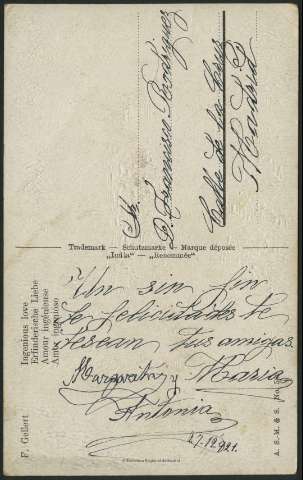 Sr.
D. Francisco Rodriguez
Calle de la Cruz
Madrid
Trademark — Schutzmarke — Marque déposée
„India“ — „Renommée“
Un sin fin
de felicidades te
desean tus amigas
Margarita y Maria
Antonia
27.12.921.
Ingenious love
Erfinderische Liebe
Amour ingénieuse
F. Gellert
A. S. M. & S.